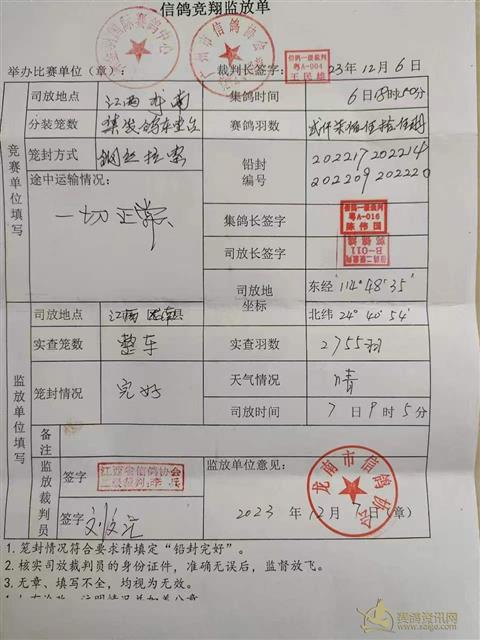 信鸽竞翔监放单
举办比赛单位（章）： 裁判长签字： 23年12月6日
信鸽一级裁判
粤A-004
王民雄
广州市信鸽协会
竞赛单位填写
司放地点 江西 龙南 集鸽时间 6日18时00分
分装笼数 赛鸽羽数
笼封方式 钢丝拉索 铅封编号 202217 202214
202209 202220
途中运输情况：
一切正常
集鸽长签字 信鸽一级裁判
粤A-016
陈伟国
司放长签字 信鸽二级裁判
B-011
司放地坐标 东经 114°48′35″
北纬 24°40′54″
监放单位填写
司放地点 江西
实查笼数 整车 实查羽数 2755羽
笼封情况 完好 天气情况 晴
司放时间 7日9时5分
备注
监放裁判员
签字 江西省信鸽协会
二级裁判：李兵
签字
监放单位意见：
龙南市信鸽协会
2023年12月7日（章）
1. 笼封情况符合要求请填定“铅封完好”。
2. 核实司放裁判员的身份证件，准确无误后，监督放飞。
3. 无章、填写不全，均视为无效。
赛鸽资讯网
www.saige.com